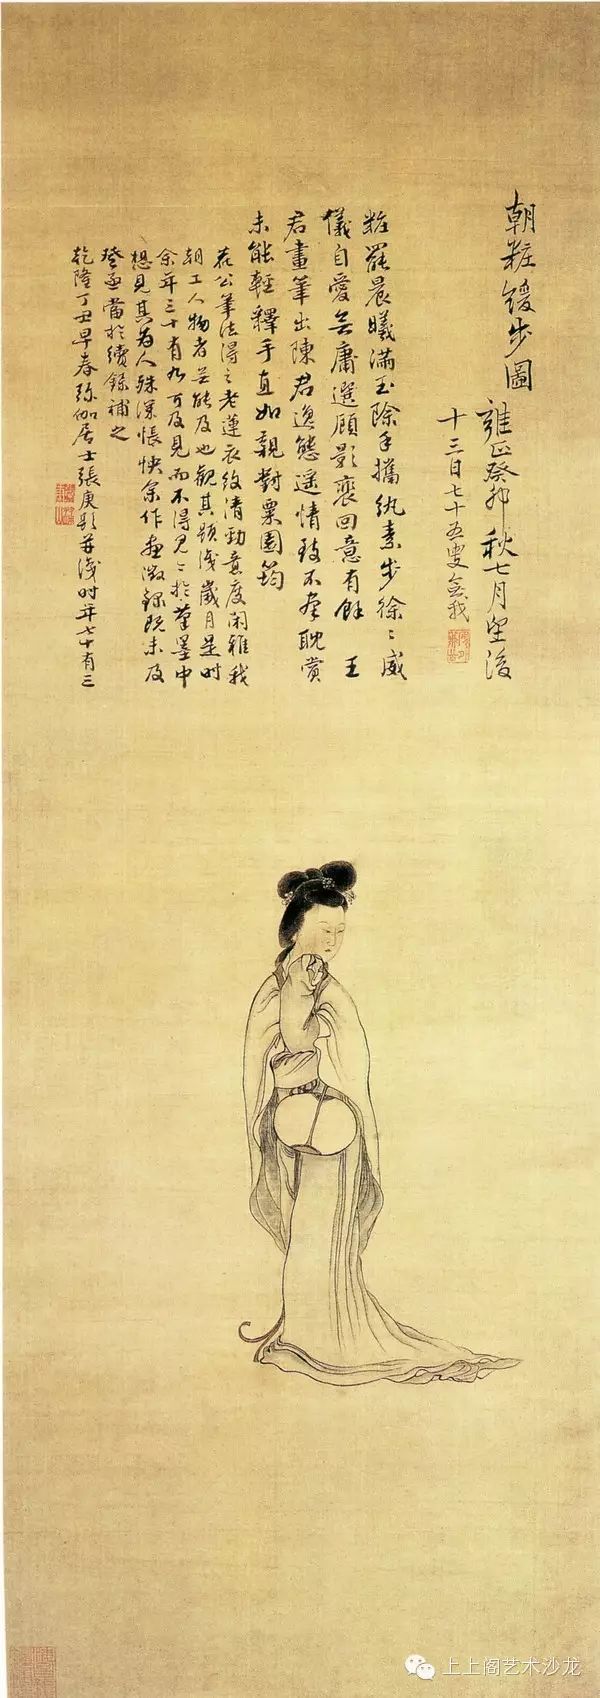 朝粧緩步圖
雍正癸卯秋七月望後
十三日七十五叟無我
粧罷晨曦滿玉除手攜紈素步徐〻威
儀自愛無庸選顧影裵回意有餘 王
君畫筆出陳君逸態遥情致不羣耽賞
未能輕釋手直如親對粟園筠
花公筆法得之老蓮衣紋清勁意度闲雅我
朝工人物者無能及也觀其題識歲月是时
余年三十有九可及見而不得見見於筆墨中
想見其為人殊深悵怏余作畫徵錄既未及
登函當於續錄補之
乾隆丁丑早春弥伽居士張庚题并識时年七十有三
上上阁艺术沙龙